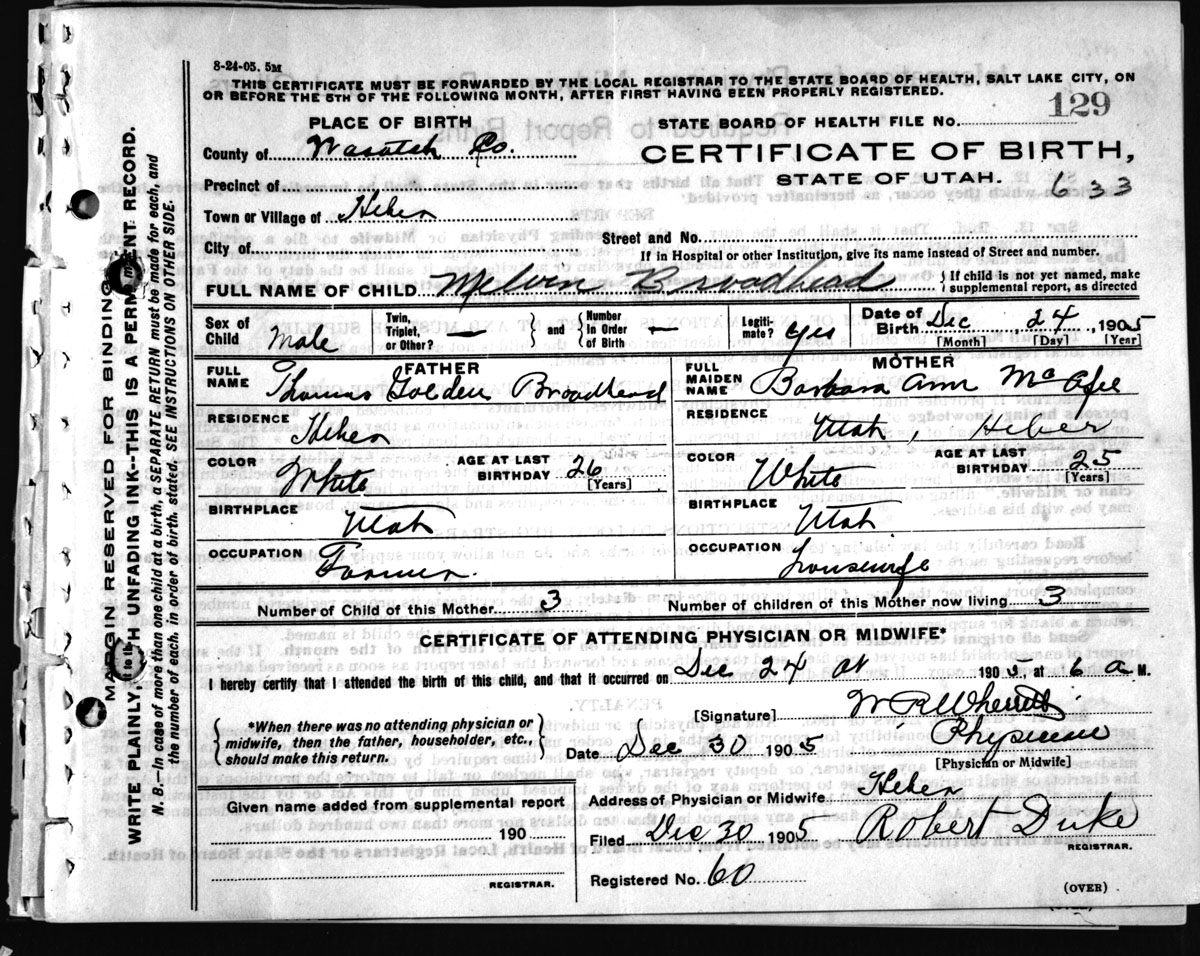 8-24-05. 5M
THIS CERTIFICATE MUST BE FORWARDED BY THE LOCAL REGISTRAR TO THE STATE BOARD OF HEALTH, SALT LAKE CITY, ON
OR BEFORE THE 5TH OF THE FOLLOWING MONTH, AFTER FIRST HAVING BEEN PROPERLY REGISTERED.
PLACE OF BIRTH
STATE BOARD OF HEALTH FILE No. 129
County of Wasatch Co.
CERTIFICATE OF BIRTH,
STATE OF UTAH. 633
Precinct of
Town or Village of Heber
Street and No.
City of
If in Hospital or other Institution, give its name instead of Street and number.
FULL NAME OF CHILD Melvin Broadhead { If child is not yet named, make
supplemental report, as directed
Sex of Child Male
Twin, Triplet, or Other? —
and Number in Order of Birth —
Legitimate? Yes
Date of Birth Dec, 24, 1905
[Month] [Day] [Year]
FATHER
FULL NAME Thomas Golden Broadhead
MOTHER
FULL MAIDEN NAME Barbara Ann McAfee
RESIDENCE Heber
RESIDENCE Utah, Heber
COLOR White AGE AT LAST BIRTHDAY 26 [Years]
COLOR White AGE AT LAST BIRTHDAY 25 [Years]
BIRTHPLACE Utah
BIRTHPLACE Utah
OCCUPATION Farmer.
OCCUPATION housewife
Number of Child of this Mother 3
Number of children of this Mother now living 3
CERTIFICATE OF ATTENDING PHYSICIAN OR MIDWIFE*
I hereby certify that I attended the birth of this child, and that it occurred on Dec 24 at 1905, at 6 a M.
*When there was no attending physician or
midwife, then the father, householder, etc.,
should make this return.
[Signature] W R Wherritt
Date Dec 30 1905 Physician
[Physician or Midwife]
Given name added from supplemental report
190
REGISTRAR.
Address of Physician or Midwife Heber
Filed Dec 30 1905 Robert Duke
REGISTRAR.
Registered No. 60
(OVER)
MARGIN RESERVED FOR BINDING
WRITE PLAINLY, WITH UNFADING INK--THIS IS A PERMANENT RECORD.
N. B.--In case of more than one child at a birth, a SEPARATE RETURN must be made for each, and
the number of each, in order of birth, stated. SEE INSTRUCTIONS ON OTHER SIDE.